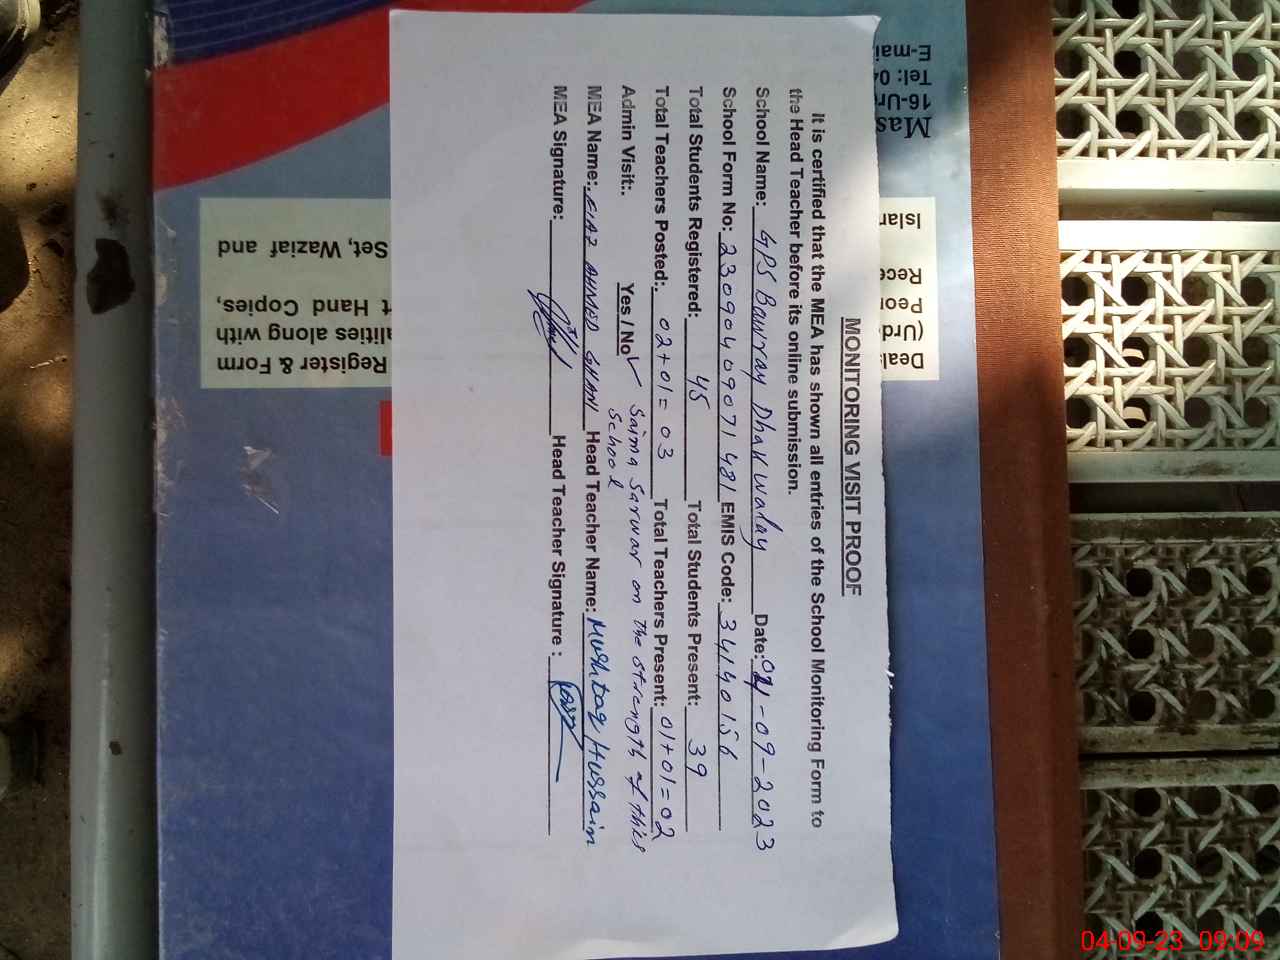 MONITORING VISIT PROOF
It is certified that the MEA has shown all entries of the School Monitoring Form to
the Head Teacher before its online submission.
School Name: GPS Banray Dhakwalay Date: 04-09-2023
School Form No: 23090409071481 EMIS Code: 34140156
Total Students Registered: 45 Total Students Present: 39
Total Teachers Posted: 02+01= 03 Total Teachers Present: 01+01=02
Admin Visit:. Yes / No ✓ Saima Sarwar on the strength of this
School
MEA Name: FIAZ AHMED GHANI Head Teacher Name: Mushtaq Hussain
MEA Signature: Head Teacher Signature :
Mas
16-Ur
Tel: 04
E-mai
Deals
(Urd
Peo
Rece
Islar
Register & Form
alities along with
t Hand Copies,
Set, Waziaf and
04-09-23 09:09